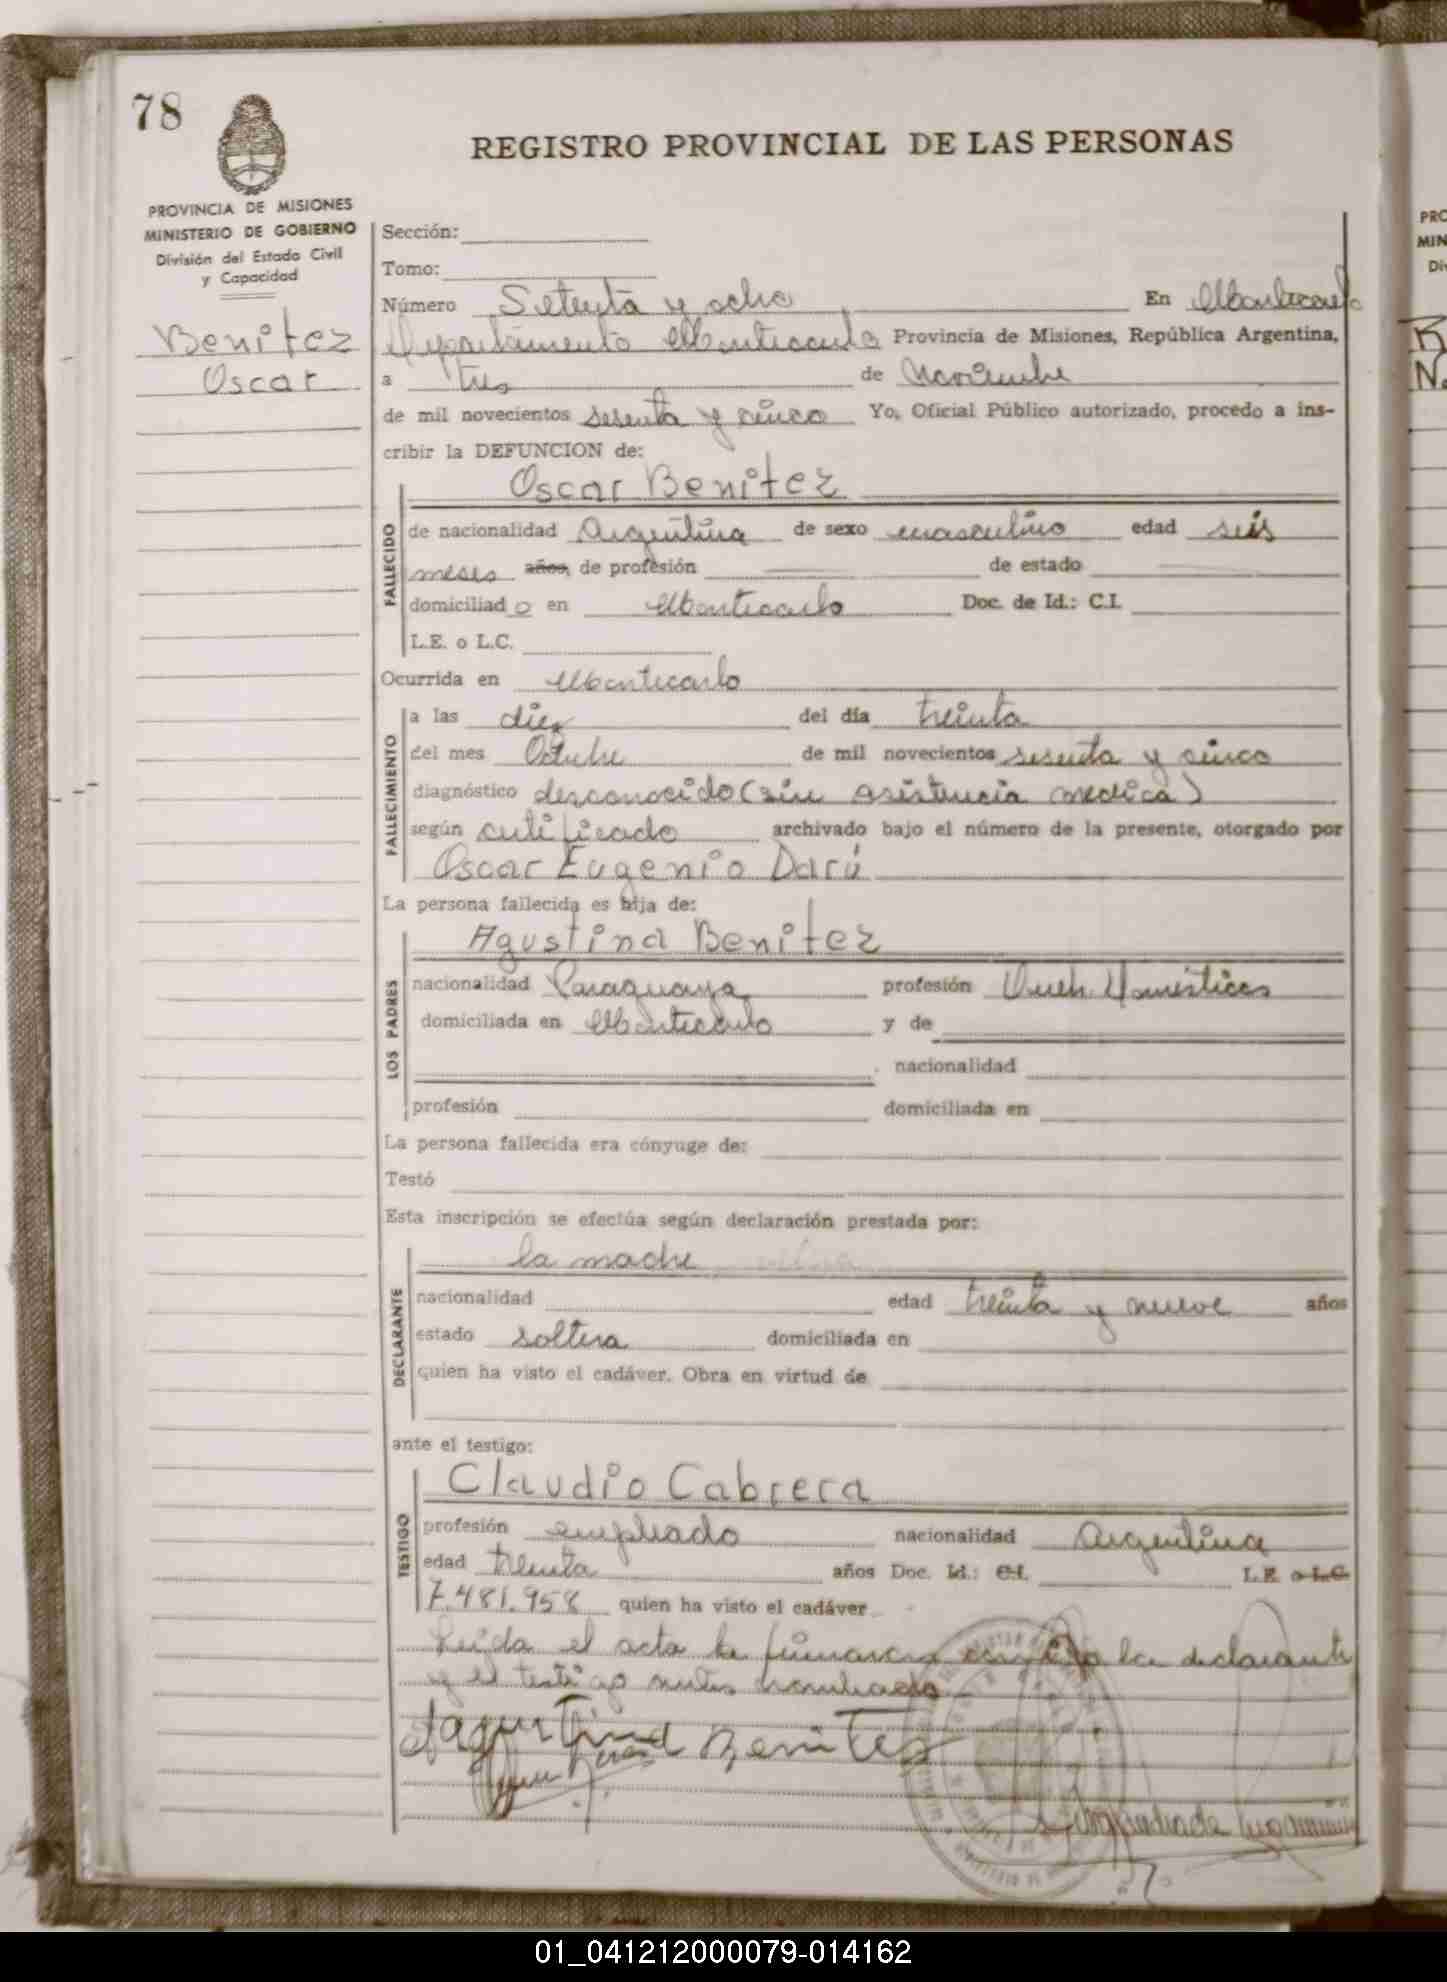 78
REGISTRO PROVINCIAL DE LAS PERSONAS
PROVINCIA DE MISIONES
MINISTERIO DE GOBIERNO
División del Estado Civil
y Capacidad
Benitez
Oscar
Sección:
Tomo:
Número Setenta y ocho En Montecarlo
Departamento Montecarlo Provincia de Misiones, República Argentina,
a tres de Noviembre
de mil novecientos sesenta y cinco Yo, Oficial Público autorizado, procedo a ins-
cribir la DEFUNCION de:
Oscar Benitez
FALLECIDO
de nacionalidad Argentina de sexo masculino edad seis
meses años, de profesión de estado
domiciliado en Montecarlo Doc. de Id.: C.I.
L.E. o L.C.
Ocurrida en Montecarlo
FALLECIMIENTO
a las diez del día treinta
del mes Octubre de mil novecientos sesenta y cinco
diagnóstico desconocido (sin asistencia medica)
según certificado archivado bajo el número de la presente, otorgado por
Oscar Eugenio Darú
La persona fallecida es hija de:
Agustina Benitez
LOS PADRES
nacionalidad Paraguaya profesión Queh. Domésticos
domiciliada en Montecarlo y de
nacionalidad
profesión domiciliada en
La persona fallecida era cónyuge de:
Testó
Esta inscripción se efectúa según declaración prestada por:
la madre
DECLARANTE
nacionalidad edad treinta y nueve años
estado soltera domiciliada en
quien ha visto el cadáver. Obra en virtud de
ante el testigo:
Claudio Cabrera
TESTIGO
profesión empleado nacionalidad Argentina
edad treinta años Doc. Id.: C.I. L.E. o L.C.
7.481.958 quien ha visto el cadáver
Leida el acta la firmaron conmigo la declarante
y el testigo antes nombrado
Agustina Benitez
PRO
MIN
Di
01_041212000079-014162